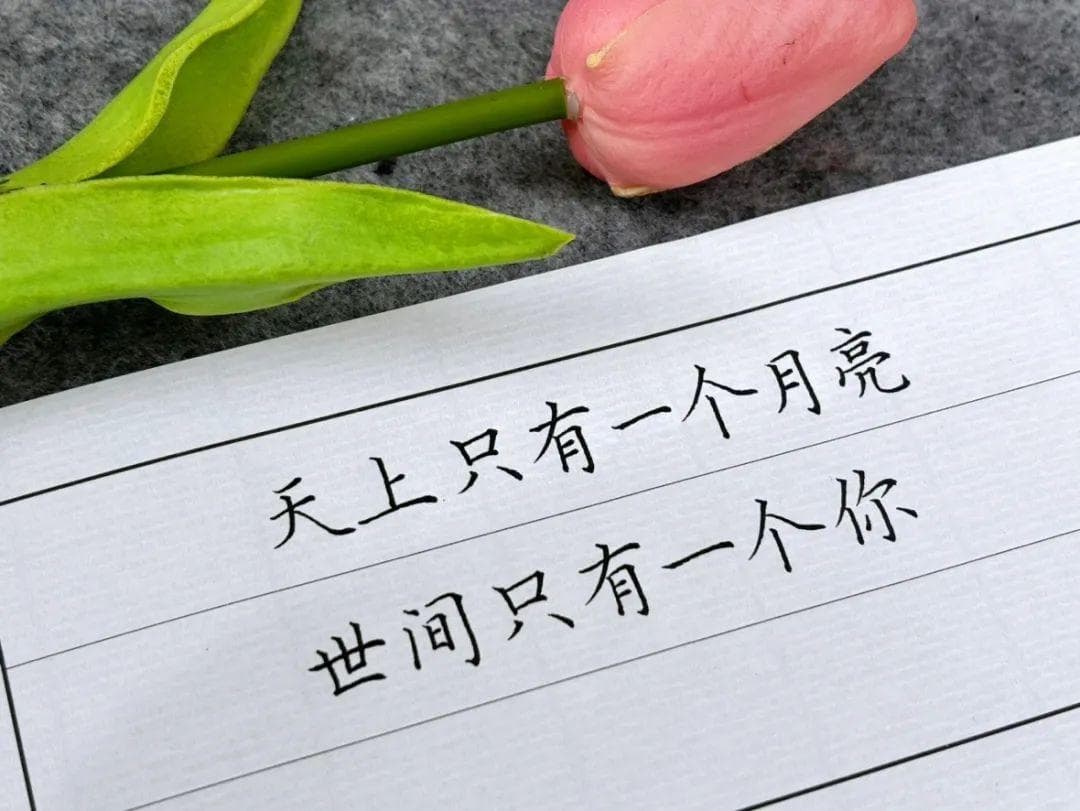 天上只有一个月亮
世间只有一个你